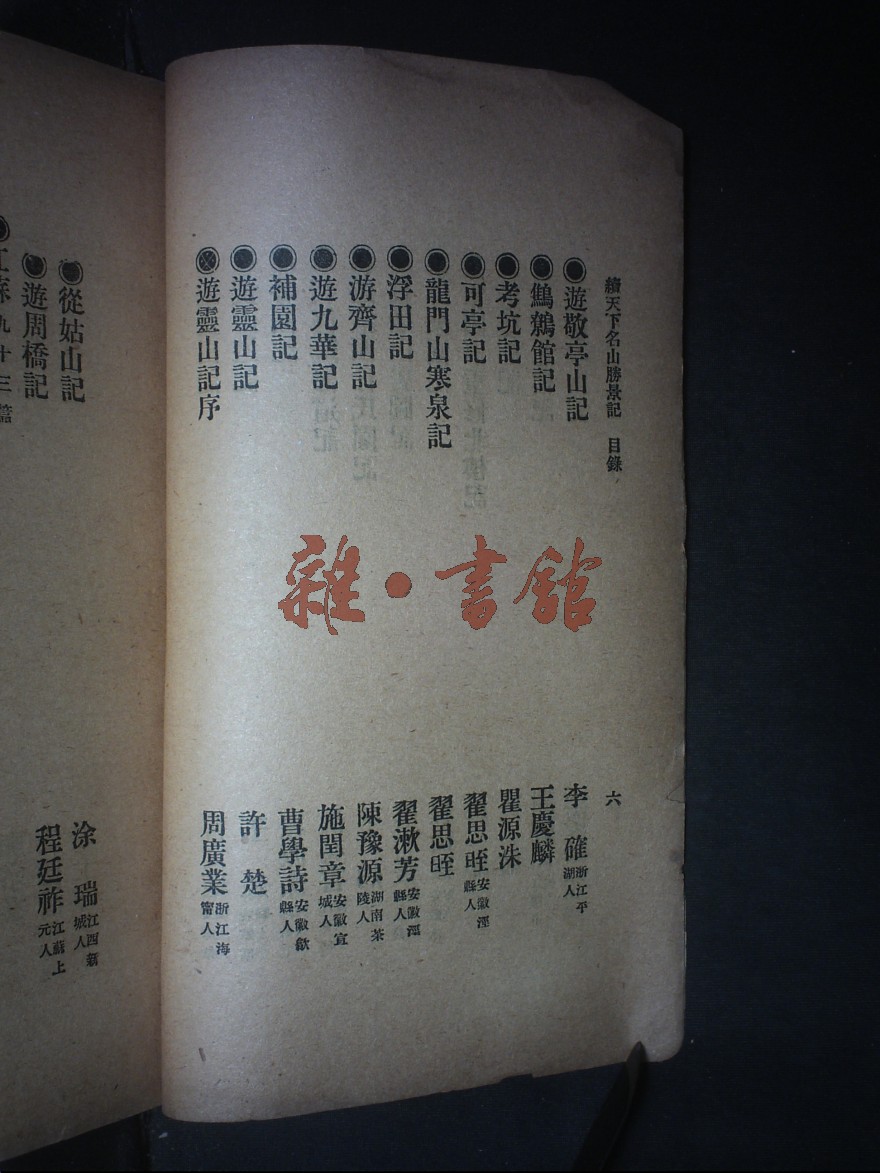 續天下名山勝景記 目錄 六
遊敬亭山記 李確 浙江平湖人
鵂鶹館記 王慶麟
考坑記 瞿源洙
可亭記 翟思晊 安徽涇縣人
龍門山寒泉記 翟思晊
浮田記 翟漱芳 安徽涇縣人
游齊山記 陳豫源 湖南茶陵人
遊九華記 施閏章 安徽宣城人
補園記 曹學詩 安徽歙縣人
遊靈山記 許楚
遊靈山記序 周廣業 浙江海甯人
雜·書館
從姑山記 涂瑞 江西新城人
遊周橋記 程廷祚 江蘇上元人
江蘇九十三篇